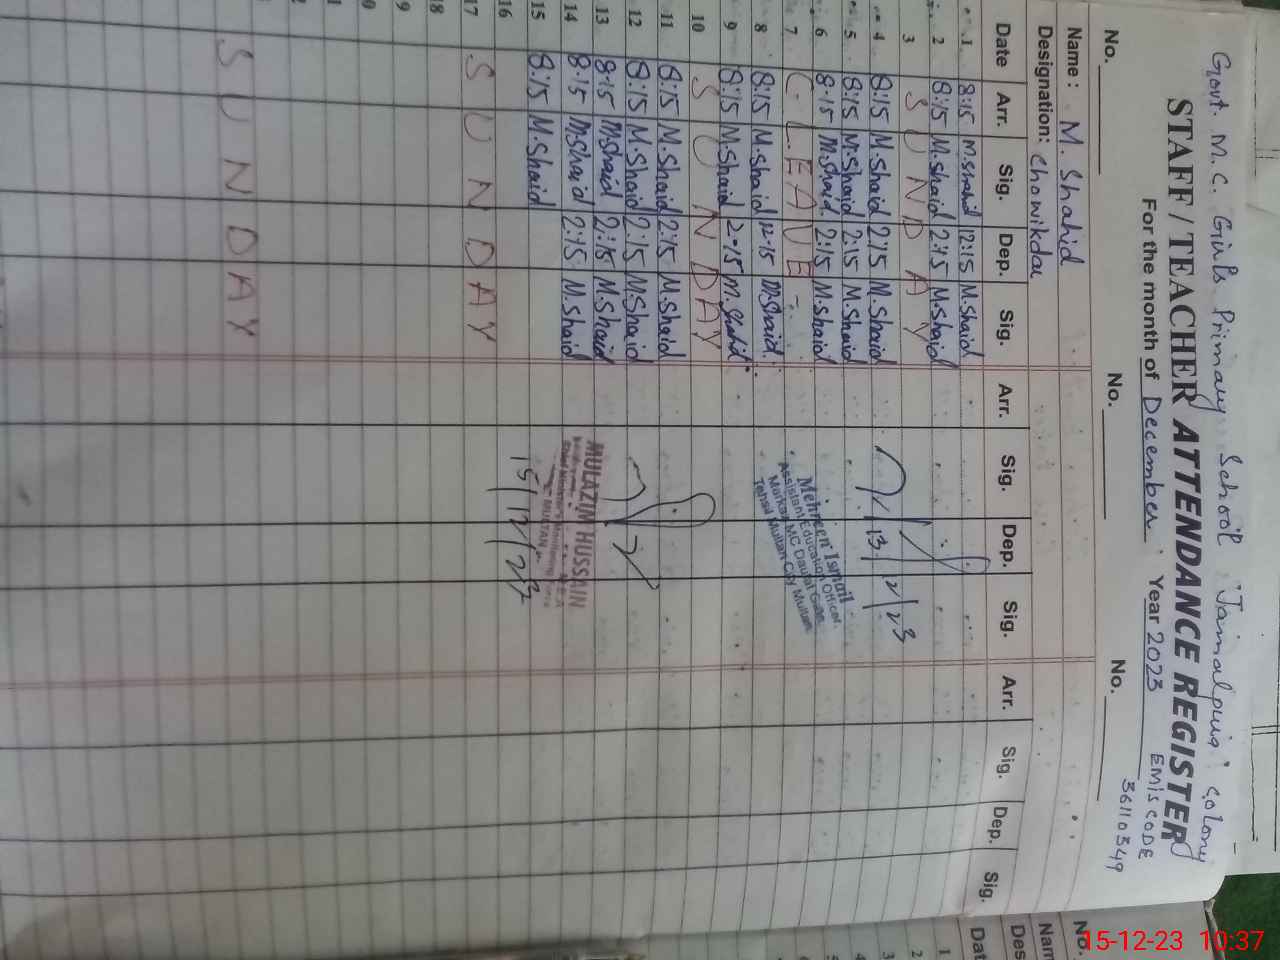 Govt. M.C. Girls Primary School Jamalpura Colony
STAFF / TEACHER ATTENDANCE REGISTER
For the month of December Year 2023 EMIS CODE
36110349
No. No. No.
Name: M. Shahid
Designation: Chowikdar
Date Arr. Sig. Dep. Sig. Arr. Sig. Dep. Sig. Arr. Sig. Dep. Sig.
1 8:15 M.Shahid 12:15 M.Shaid
2 8:15 M.Shaid 2:15 M.Shaid
3 SUNDAY
4 8:15 M.Shaid 2:15 M.Shaid
5 8:15 M.Shaid 2:15 M.Shaid
6 8:15 M.Shaid 2:15 M.Shaid
7 C.LEAVE
8 8:15 M.Shaid 12:15 M.Shaid
9 8:15 M.Shaid 2:15 M.Shahid
10 SUNDAY
11 8:15 M.Shaid 2:15 M.Shaid
12 8:15 M.Shaid 2:15 M.Shaid
13 8:15 M.Shaid 2:15 M.Shaid
14 8:15 M.Shaid 2:15 M.Shaid
15 8:15 M.Shaid
16
17 SUNDAY
18
9
0
1
2
SUNDAY
13/12/23
Mehreen Ismail
Assistant Education Officer
Markaz MC Daulat Gate
Tehsil Multan City Multan
MULAZIM HUSSAIN
MULTAN
15/12/23
No.
Nam
Des
Dat
1
2
3
4
15-12-23 10:37